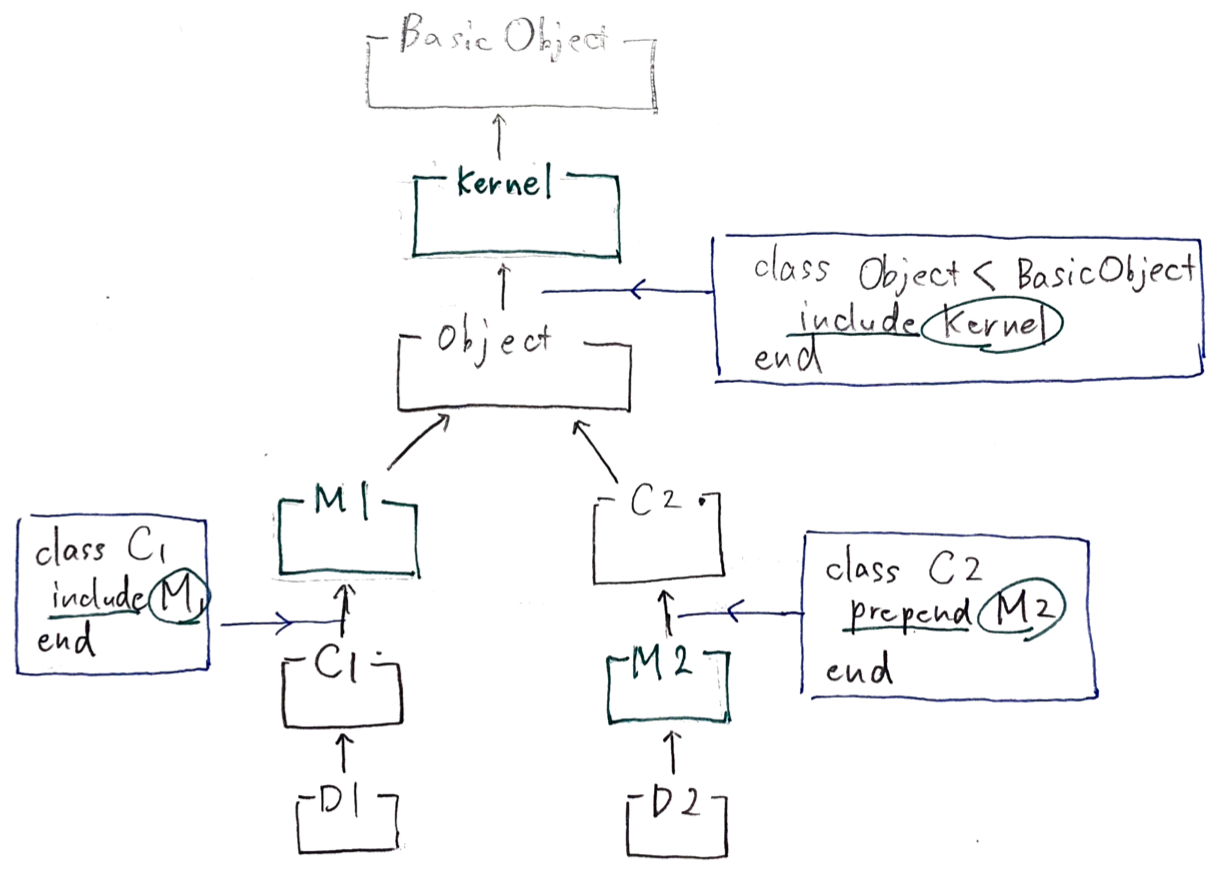 Basic Object
Kernel
class Object < BasicObject
include Kernel
end
Object
M1
C2
class C1
include M1
end
class C2
prepend M2
end
C1
M2
D1
D2